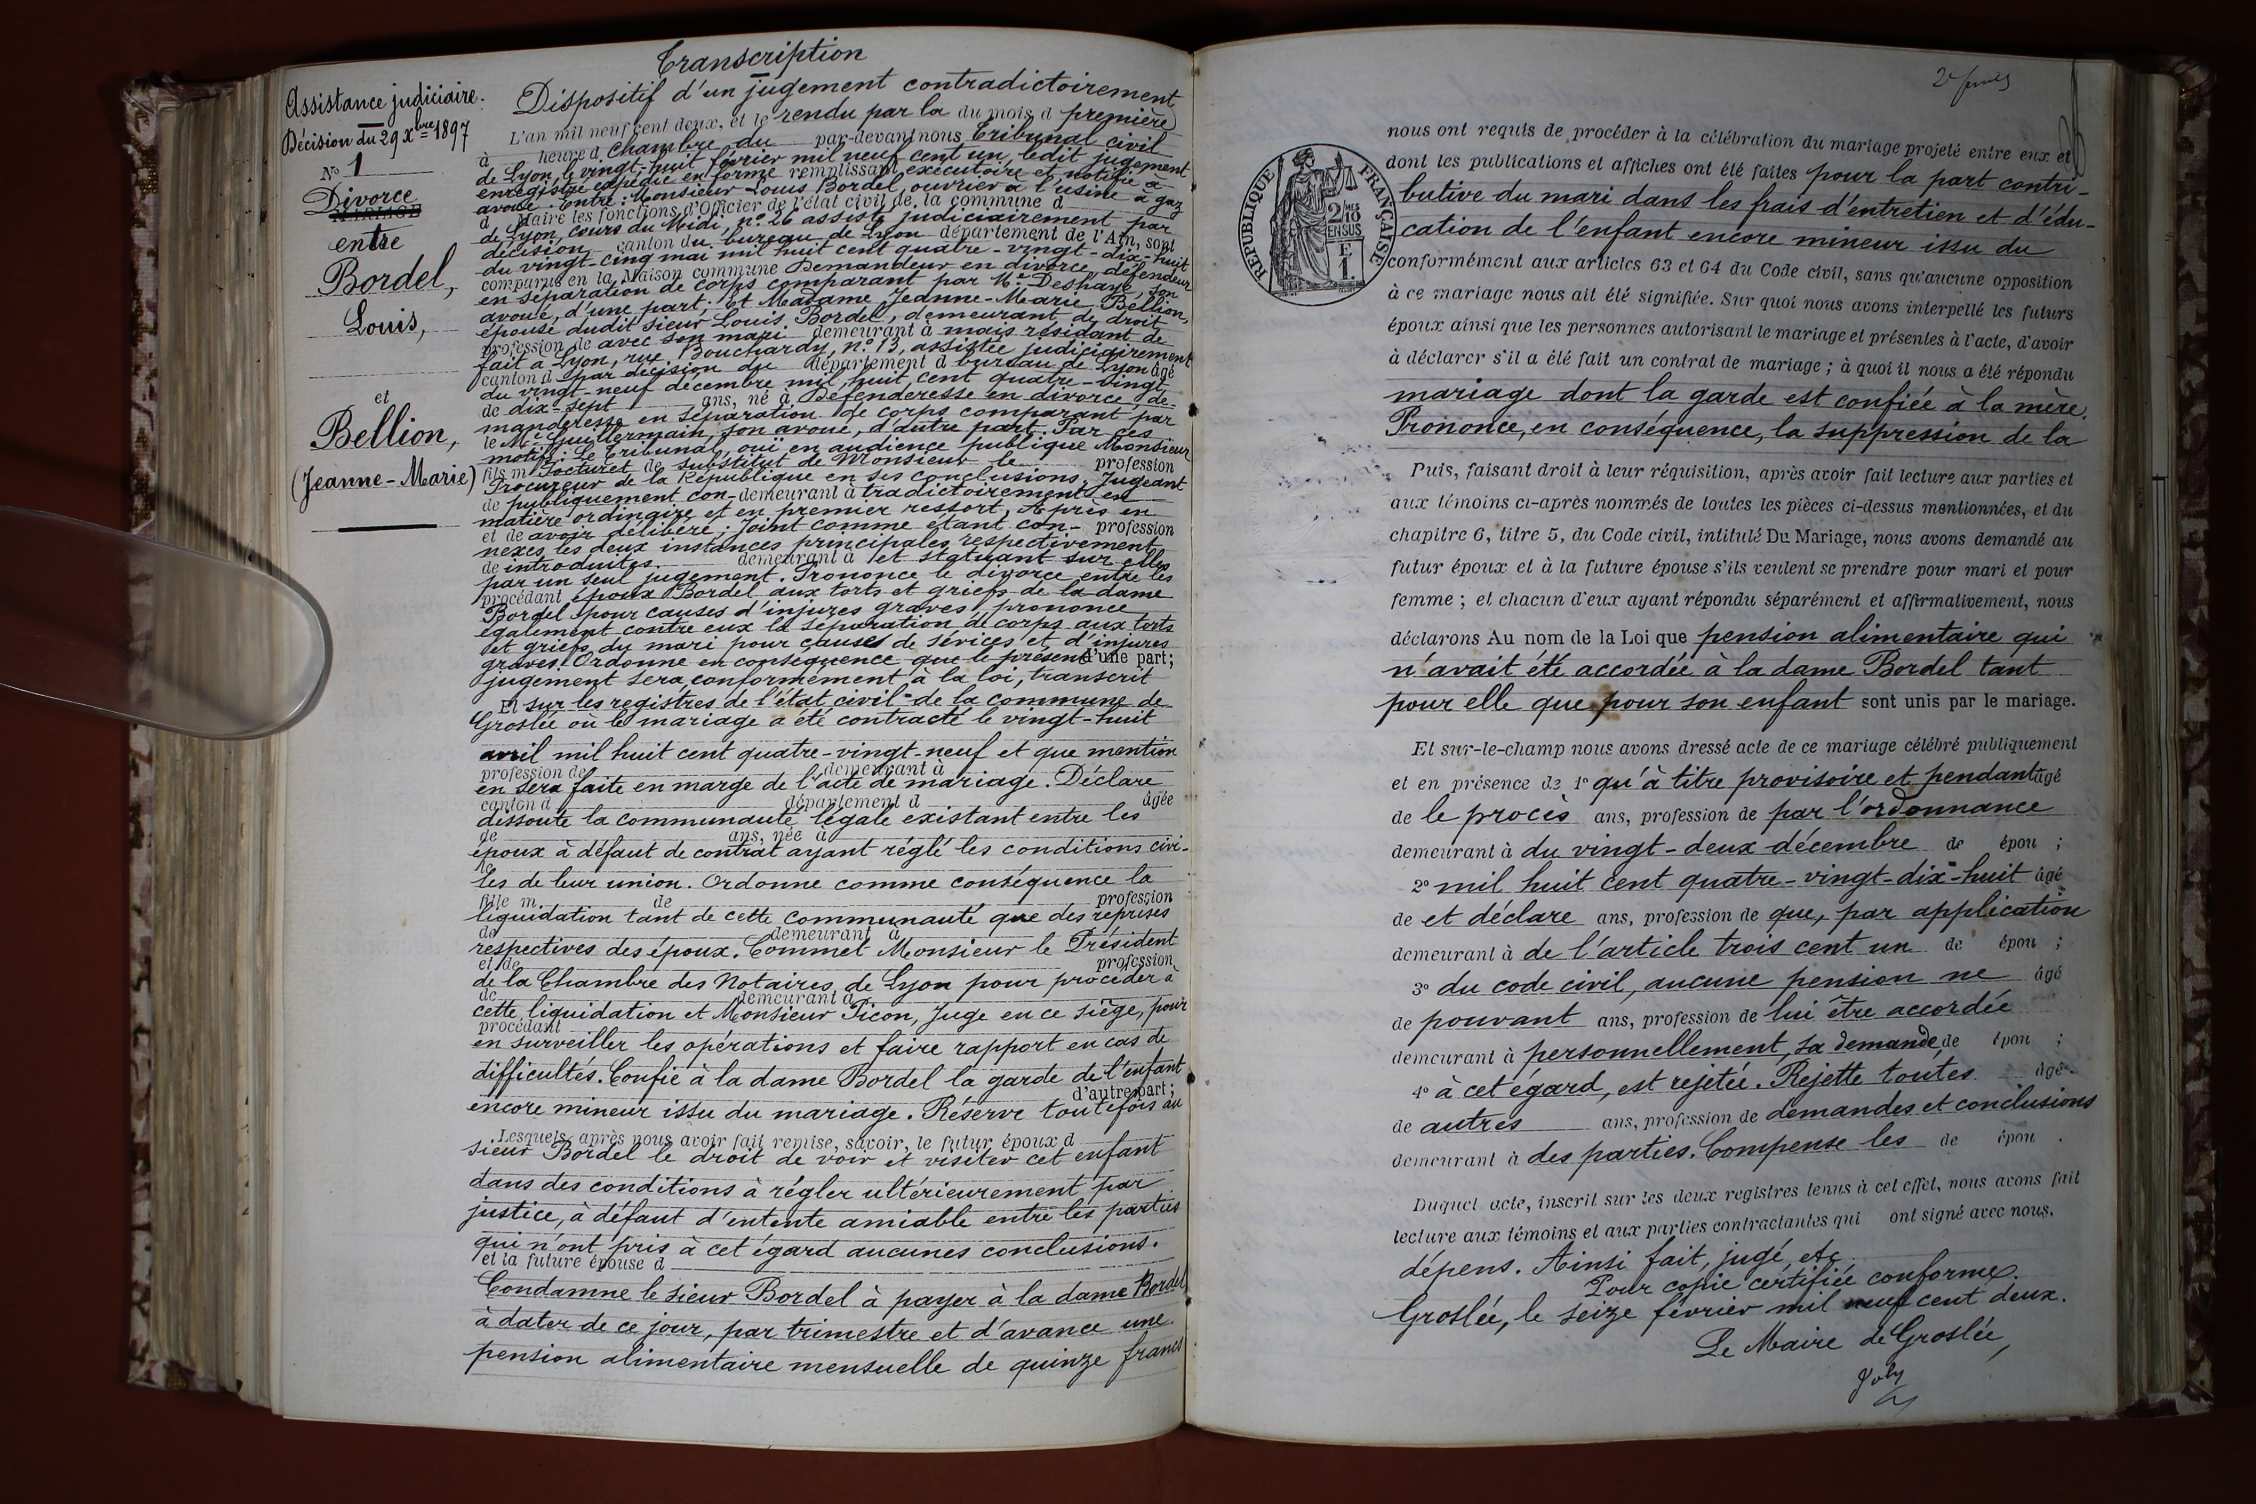 Transcription
Assistance judiciaire.
Décision du 29 Xbre 1897
No 1
Divorce
MARIAGE
entre
Bordel,
Louis,
et
Bellion,
(Jeanne-Marie)
Dispositif d'un jugement contradictoirement
rendu par la première
L'an mil neuf cent deux, et le du mois d
chambre du Tribunal civil
à heure d par-devant nous
de Lyon, le vingt-huit février mil neuf cent un, ledit jugement
enregistré expédié en forme exécutoire et notifié à
remplissant
avoué. Entre: Monsieur Louis Bordel, ouvrier à l'usine à gaz
d Maire les fonctions d'Officier de l'état civil de la commune d
de Lyon, cours du Midi, n° 26 assisté judiciairement par
décision du bureau de Lyon
canton d département de l'Ain, sont
du vingt-cinq mai mil huit cent quatre-vingt-dix-huit
comparus en la Maison commune Demandeur en divorce, défendeur
en séparation de corps comparant par Me Deshaye, son
avoué, d'une part; Et Madame Jeanne-Marie Bellion,
épouse dudit sieur Louis Bordel, demeurant de droit
profession de demeurant à
avec son mari mais résidant de
fait à Lyon, rue Bouchardy, n° 13, assistée judiciairement
canton d département d âgé
par décision du bureau de Lyon
du vingt-neuf décembre mil huit cent quatre-vingt
de dix-sept ans, né à Défenderesse en divorce, de-
manderesse en séparation de corps comparant par
le Me Guillermain, son avoué, d'autre part. Par ces
motifs: Le Tribunal, ouï en audience publique Monsieur
fils m de profession
substitut de Monsieur le
Procureur de la République en ses conclusions, Jugeant
de demeurant à
publiquement contradictoirement en
matière ordinaire et en premier ressort, Après en
et de profession
avoir délibéré; Joint comme étant con-
nexes les deux instances principales respectivement
de demeurant à
introduites et statuant sur elles
par un seul jugement. Prononce le divorce entre les
procédant époux Bordel aux torts et griefs de la dame
Bordel pour causes d'injures graves, prononce
également contre eux la séparation de corps aux torts
et griefs du mari pour causes de sévices et d'injures
graves. Ordonne en conséquence que le présent d'une part;
jugement sera, conformément à la loi, transcrit
Et sur les registres de l'état civil de la commune de
Groslée où le mariage a été contracté le vingt-huit
avril mil huit cent quatre-vingt-neuf et que mention
profession de demeurant à
en sera faite en marge de l'acte de mariage. Déclare
canton d département d âgée
dissoute la communauté légale existant entre les
de ans, née à
époux à défaut de contrat ayant réglé les conditions civi-
le
les de leur union. Ordonne comme conséquence la
fille m de profession
liquidation tant de cette communauté que des reprises
de demeurant à
respectives des époux. Commet Monsieur le Président
et de profession
de la Chambre des Notaires de Lyon pour procéder à
de demeurant à
cette liquidation et Monsieur Picon, Juge en ce siège, pour
procédant
en surveiller les opérations et faire rapport en cas de
difficultés. Confie à la dame Bordel la garde de l'enfant
d'autre part;
encore mineur issu du mariage. Réserve toutefois au
Lesquels, après nous avoir fait remise, savoir, le futur époux d
sieur Bordel le droit de voir et visiter cet enfant
dans des conditions à régler ultérieurement par
justice, à défaut d'entente amiable entre les parties
qui n'ont pris à cet égard aucunes conclusions.
et la future épouse d
Condamne le sieur Bordel à payer à la dame Bordel
à dater de ce jour, par trimestre et d'avance une
pension alimentaire mensuelle de quinze francs
RÉPUBLIQUE FRANÇAISE
2/10
EN SUS
E
1.
nous ont requis de procéder à la célébration du mariage projeté entre eux et
dont les publications et affiches ont été faites pour la part contri-
butive du mari dans les frais d'entretien et d'édu-
cation de l'enfant encore mineur issu du
conformément aux articles 63 et 64 du Code civil, sans qu'aucune opposition
à ce mariage nous ait été signifiée. Sur quoi nous avons interpellé les futurs
époux ainsi que les personnes autorisant le mariage et présentes à l'acte, d'avoir
à déclarer s'il a été fait un contrat de mariage; à quoi il nous a été répondu
mariage dont la garde est confiée à la mère.
Prononce, en conséquence, la suppression de la
Puis, faisant droit à leur réquisition, après avoir fait lecture aux parties et
aux témoins ci-après nommés de toutes les pièces ci-dessus mentionnées, et du
chapitre 6, titre 5, du Code civil, intitulé Du Mariage, nous avons demandé au
futur époux et à la future épouse s'ils veulent se prendre pour mari et pour
femme; et chacun d'eux ayant répondu séparément et affirmativement, nous
déclarons Au nom de la Loi que pension alimentaire qui
n'avait été accordée à la dame Bordel tant
pour elle que pour son enfant sont unis par le mariage.
Et sur-le-champ nous avons dressé acte de ce mariage célébré publiquement
et en présence de 1° qu'à titre provisoire et pendant âgé
de le procès ans, profession de par l'ordonnance
demeurant à du vingt-deux décembre de épou ;
2° mil huit cent quatre-vingt-dix-huit âgé
de et déclare ans, profession de que, par application
demeurant à de l'article trois cent un de épou ;
3° du code civil, aucune pension ne âgé
de pouvant ans, profession de lui être accordée
demeurant à personnellement, sa demande, de épou ;
4° à cet égard, est rejetée. Rejette toutes âgé
de autres ans, profession de demandes et conclusions
demeurant à des parties. Compense les de épou .
Duquel acte, inscrit sur les deux registres tenus à cet effet, nous avons fait
lecture aux témoins et aux parties contractantes qui ont signé avec nous.
dépens. Ainsi fait, jugé, etc
Pour copie certifiée conforme.
Groslée, le seize février mil neuf cent deux.
Le Maire de Groslée,
Joly